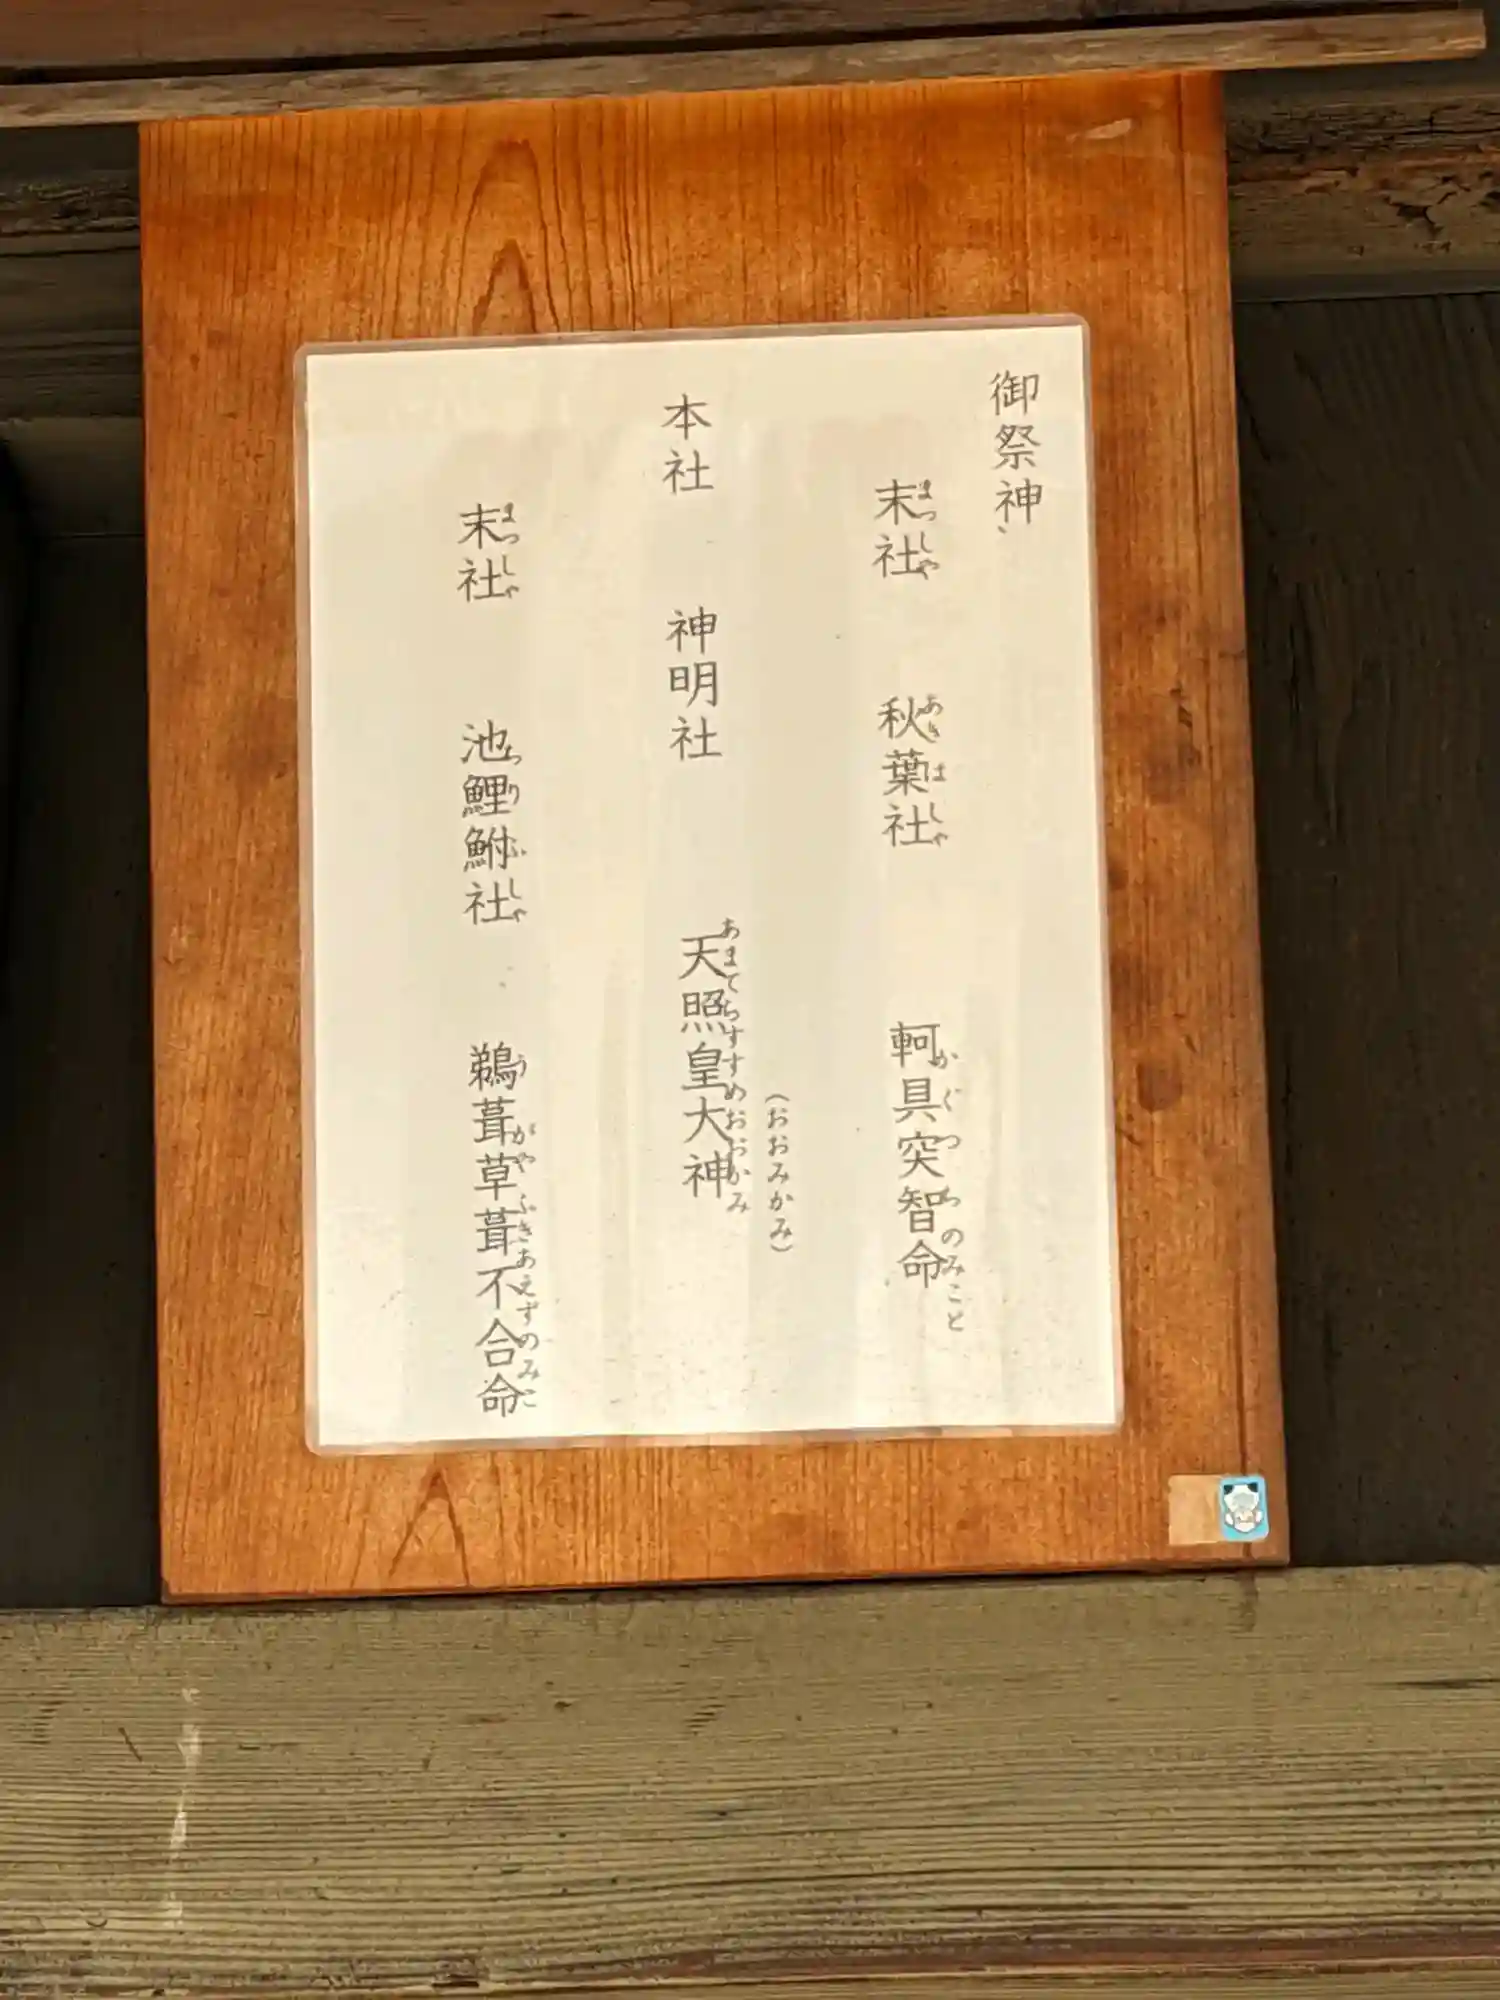 御祭神
末社 秋葉社 軻具突智命
まつしゃ あきはしゃ かぐつちのみこと
本社 神明社 天照皇大神
あまてらすすめおおかみ
(おおみかみ)
末社 池鯉鮒社 鵜葺草葺不合命
まつしゃ ちりふしゃ うがやふきあえずのみこ